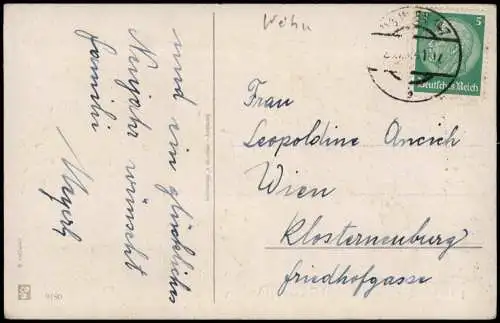 Wehn
5
Deutsches Reich
und ein glückliches
Neujahr wünscht
Familie
Frau
Leopoldine
Wien
Klosterneuburg
Friedhofgasse
9190